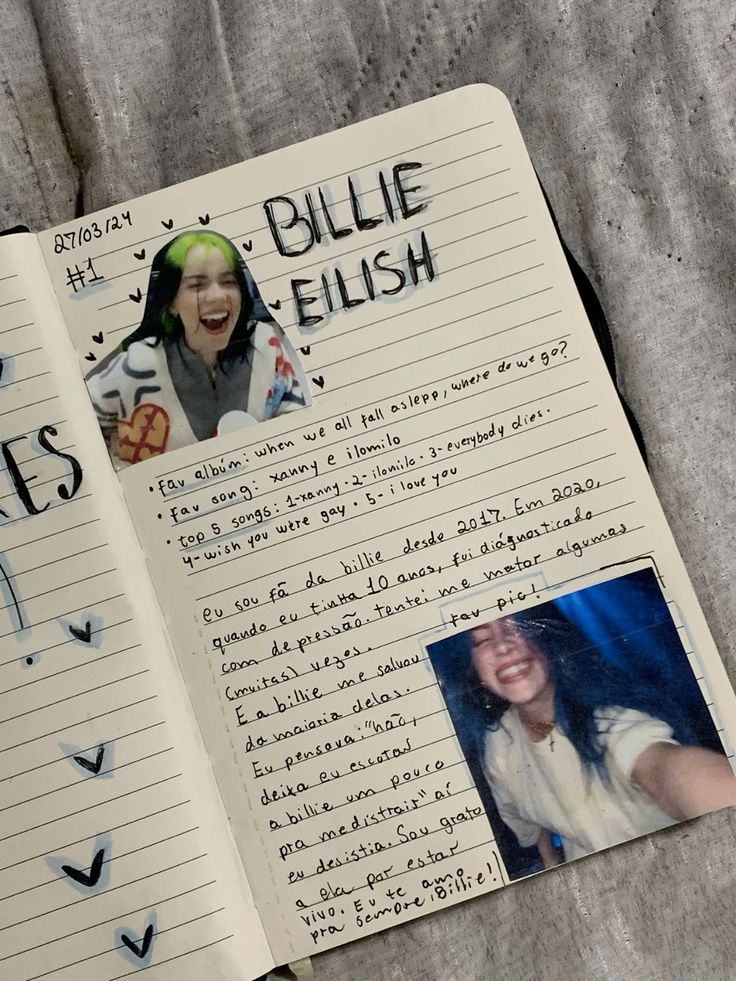 27/03/24
#1
BILLIE
EILISH
• fav albúm: when we all fall aslepp, where do we go?
• fav song: xanny e ilomilo
• top 5 songs: 1-xanny • 2- ilomilo • 3- everybody dies.
4- wish you were gay • 5- i love you
eu sou fã da billie desde 2017. Em 2020,
quando eu tinha 10 anos, fui diágnosticado
com depressão. tentei me matar algumas
(muitas) vezes.
fav pic!
E a billie me salvou
da maioria delas.
Eu pensava: "não,
deixa eu escutar
a billie um pouco
pra me distrair" aí
eu desistia. Sou grato
a ela por estar
vivo. Eu te amo
pra sempre, Billie!